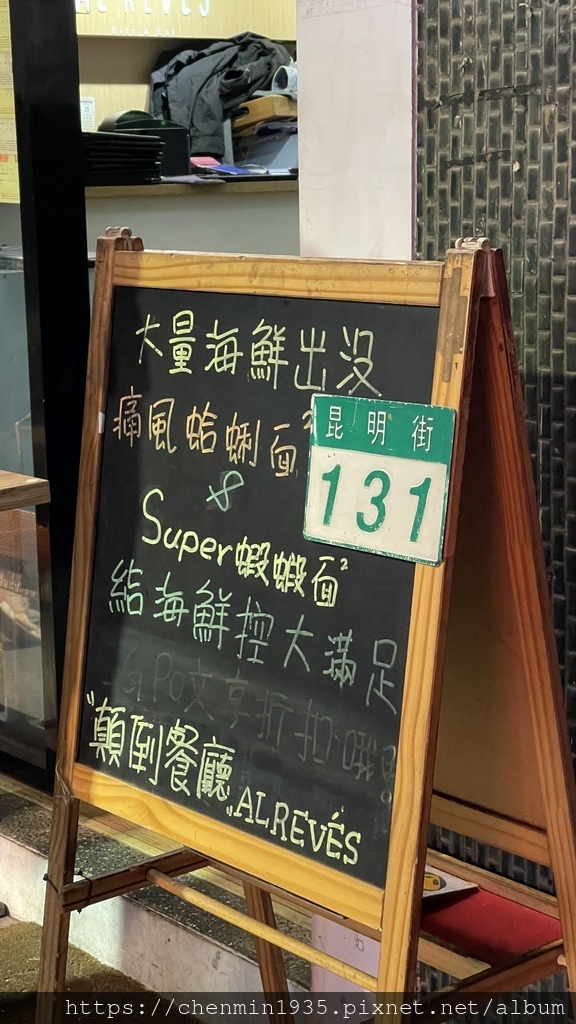 大量海鮮出沒
痛風蛤蜊面²
&
昆明街
131
Super蝦蝦面²
給海鮮控大滿足
PO文享折扣哦
"顛倒餐廳" ALREVÉS
https://chenmin1935.pixnet.net/album